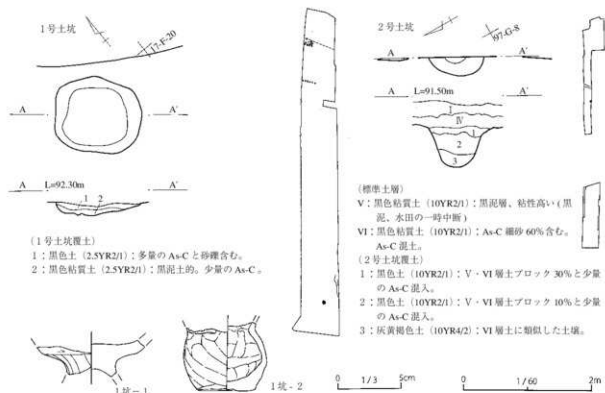 1号土坑
17-F-20
A
A'
A
L=92.30m
A'
1
2
(1号土坑覆土)
1：黒色土 (2.5YR2/1)：多量の As-C と砂礫含む。
2：黒色粘質土 (2.5YR2/1)：黒泥土的。少量の As-C 。
1坑-1
1坑-2
2号土坑
97-G-8
A
A'
A
L=91.50m
A'
I
Ⅳ
1
2
3
(標準土層)
V：黒色粘質土 (10YR2/1)：黒泥層、粘性高い ( 黒
泥、水田の一時中断)
VI：黒色粘質土 (10YR2/1)：As-C 細砂 60％含む。
As-C 混土。
(2号土坑覆土)
1：黒色土 (10YR2/1)：V・VI 層土ブロック 30％と少量
の As-C 混入。
2：黒色土 (10YR2/1)：V・VI 層土ブロック 10％と少量
の As-C 混入。
3：灰黄褐色土 (10YR4/2)：VI 層土に類似した土壌。
0 1/3 5cm
0 1/60 2m